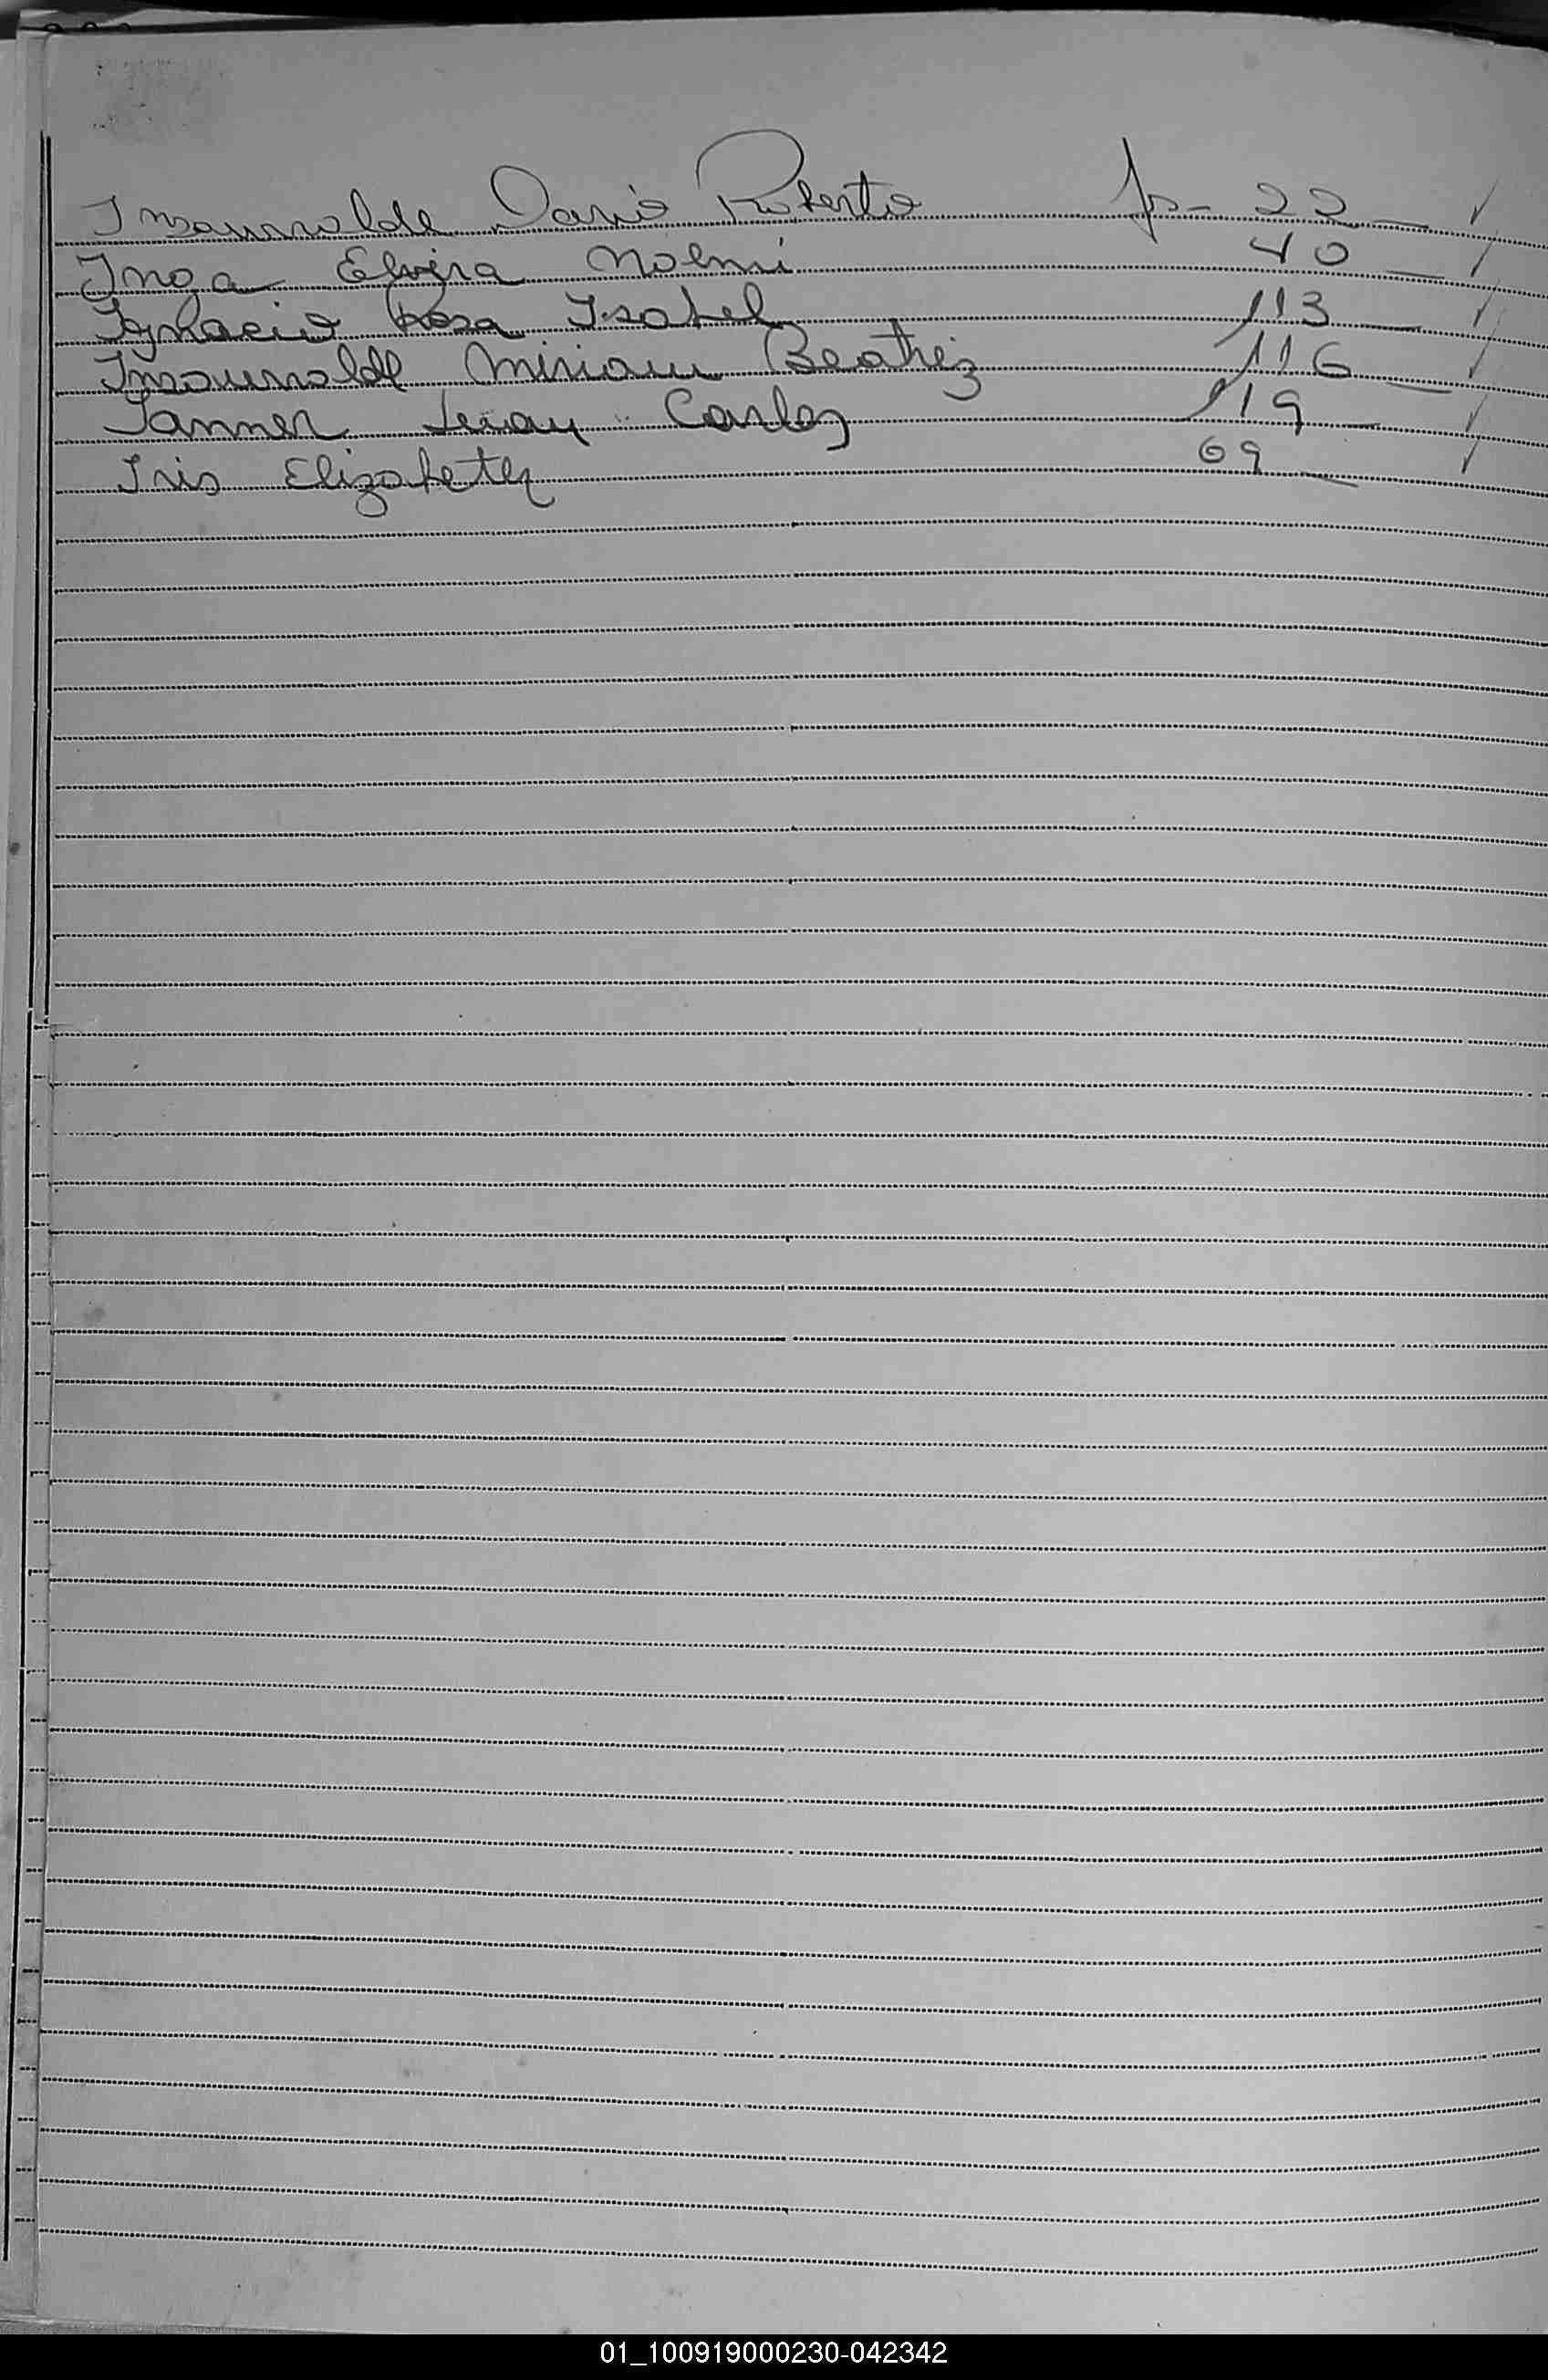 Insaurralde Dario Roberto fs- 22 ✓
Inga Elvira Noemi 40 ✓
Ignacio Rosa Isabel 113 ✓
Insaurralde Miriam Beatriz 116 ✓
Carlos 119 ✓
Iris Elizabeth 69 ✓
01_100919000230-042342